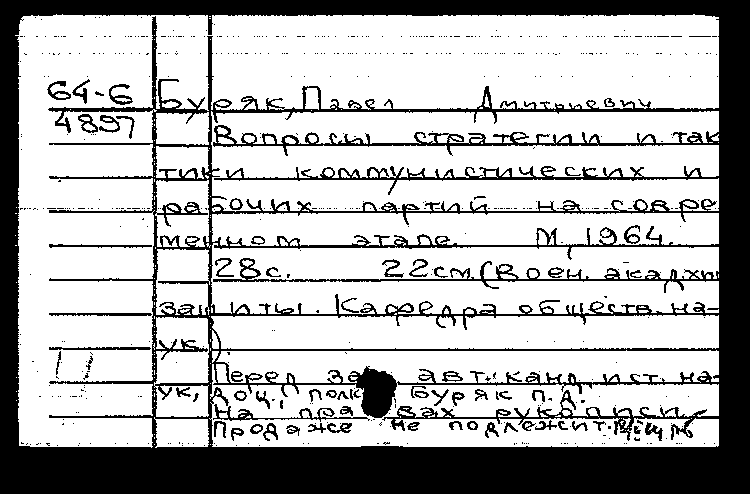 64-6 Буряк, Павел Дмитриевич
4897 Вопросы стратегии и так
тики коммунистических и
рабочих партий на совре
менном этапе. М., 1964.
28с. 22см. (Воен. акад. хим
защиты. Кафедра обществ. на-
ук).
Перед авт.: канд. ист. на-
ук, доц., полк Буряк П.Д.
на правах рукописи.
Продаже не подлежит.